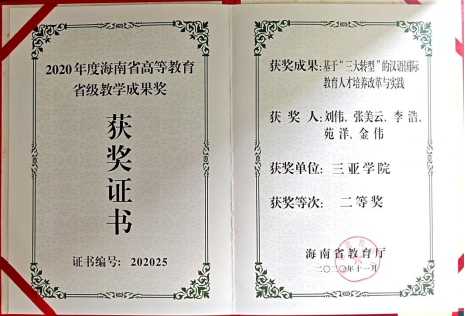 2020年度海南省高等教育
省级教学成果奖
获奖证书
证书编号：202025
获奖成果：基于“三大转型”的汉语国际
教育人才培养改革与实践
获奖人：刘伟、张美云、李浩、
苑洋、金伟
获奖单位：三亚学院
获奖等次：二等奖
海南省教育厅
二〇二〇年十一月